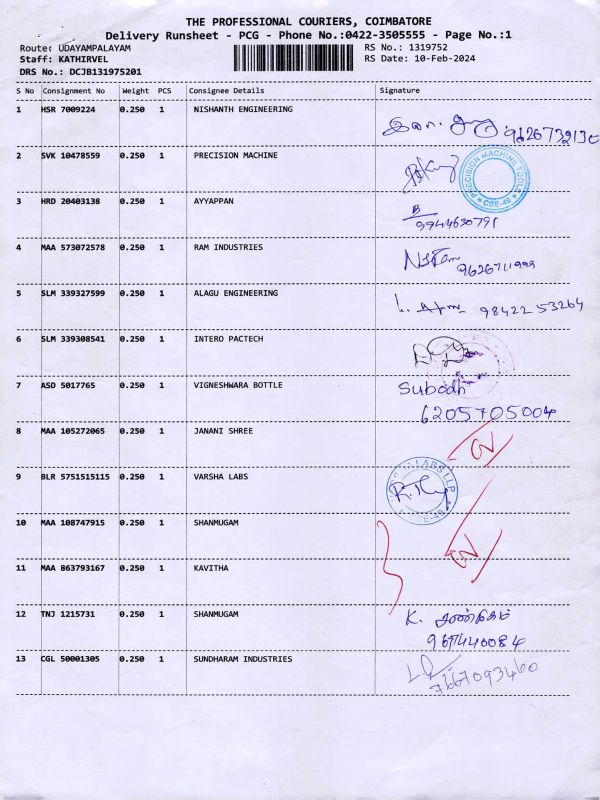 THE PROFESSIONAL COURIERS, COIMBATORE
Delivery Runsheet - PCG - Phone No.:0422-3505555 - Page No.:1
Route: UDAYAMPALAYAM RS No.: 1319752
Staff: KATHIRVEL RS Date: 10-Feb-2024
DRS No.: DCJB131975201
S No Consignment No Weight PCS Consignee Details Signature
1 HSR 7009224 0.250 1 NISHANTH ENGINEERING
2 SVK 10478559 0.250 1 PRECISION MACHINE
PRECISION MACHINE TOOLS
CBE-49
3 HRD 20403138 0.250 1 AYYAPPAN
9944630791
4 MAA 573072578 0.250 1 RAM INDUSTRIES
5 SLM 339327599 0.250 1 ALAGU ENGINEERING 98422 53264
6 SLM 339308541 0.250 1 INTERO PACTECH
7 ASD 5017765 0.250 1 VIGNESHWARA BOTTLE Subodh
6205705004
8 MAA 105272065 0.250 1 JANANI SHREE
9 BLR 5751515115 0.250 1 VARSHA LABS
LABS LLP
10 MAA 108747915 0.250 1 SHANMUGAM
11 MAA 863793167 0.250 1 KAVITHA
12 TNJ 1215731 0.250 1 SHANMUGAM K. சண்முகம்
13 CGL 50001305 0.250 1 SUNDHARAM INDUSTRIES
7667093460